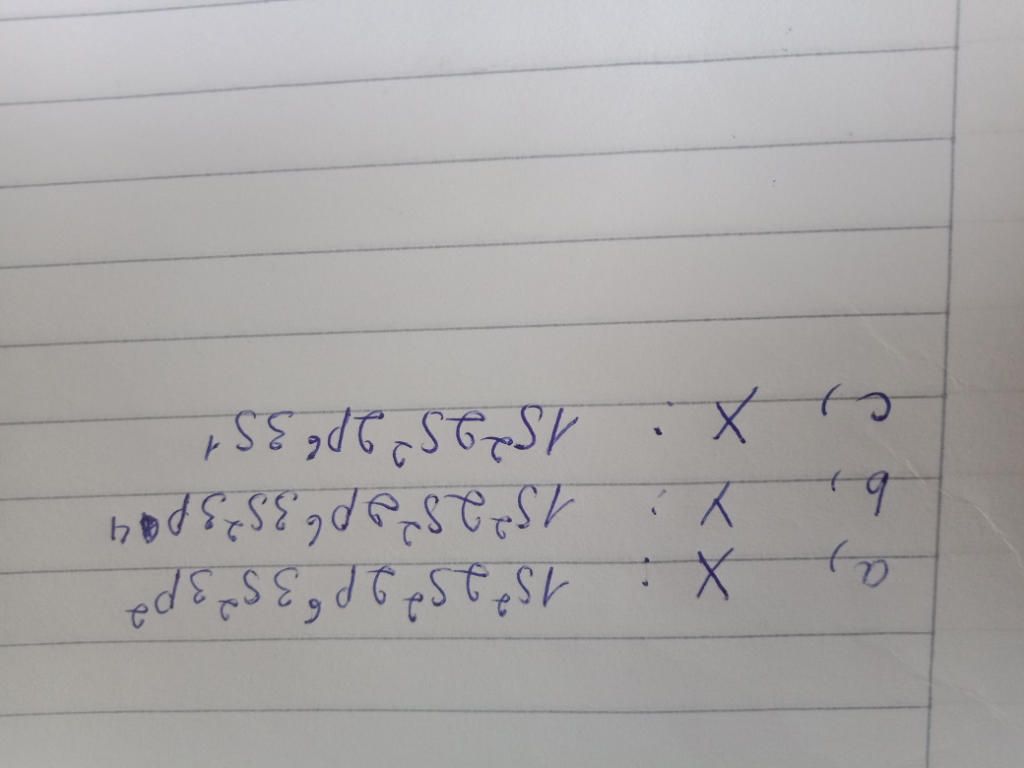 a, X : 1s²2s²2p⁶3s²3p²
b, Y : 1s²2s²2p⁶3s²3p4
c, X : 1s²2s²2p⁶3s¹